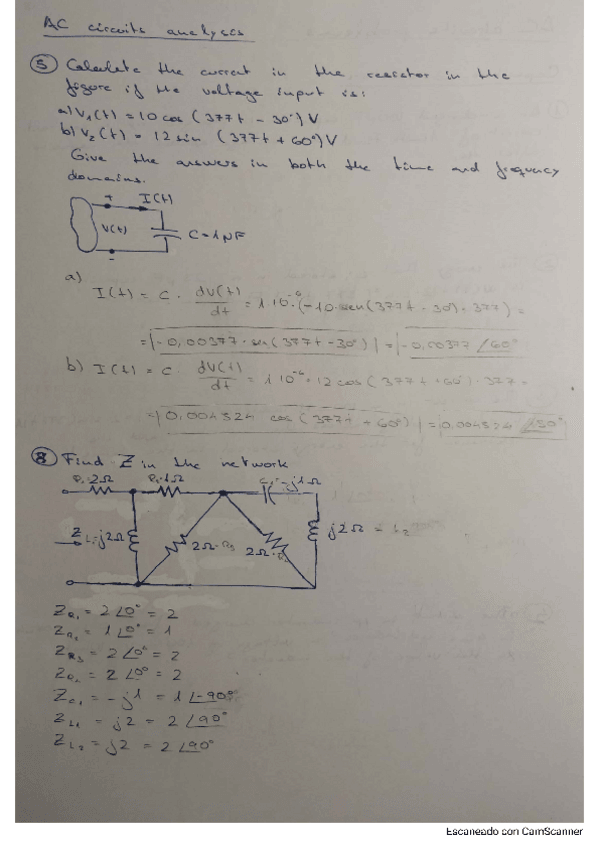 AC circuits analyses
5 Calculate the current in the resistor in the
figure if the voltage input is:
a) V₁(t) = 10 cos (377t - 30°) V
b) V₂(t) = 12 sin (377t + 60°) V
Give the answers in both the time and frequency
domains.
+ I(t)
V(t) C = 1μF
-
a)
I(t) = C · dV(t)/dt = 1·10⁻⁶ · (-10 · sen(377t - 30°) · 377) =
= -0,00377 · sen(377t - 30°) = -0,00377 ∠60°
b) I(t) = C · dV(t)/dt = 1·10⁻⁶ · 12 cos(377t + 60°) · 377 =
= 0,004524 cos(377t + 60°) = 0,004524 ∠150°
8 Find Z in the network
2Ω 1Ω -j1Ω
Z j2Ω 2Ω 2Ω j2Ω
Z_R₁ = 2∠0° = 2
1∠0° = 1
Z_R₃ = 2∠0° = 2
2∠0° = 2
Z_C₁ = -j1 = 1∠-90°
Z_L₁ = j2 = 2∠90°
Z_L₂ = j2 = 2∠90°
Escaneado con CamScanner